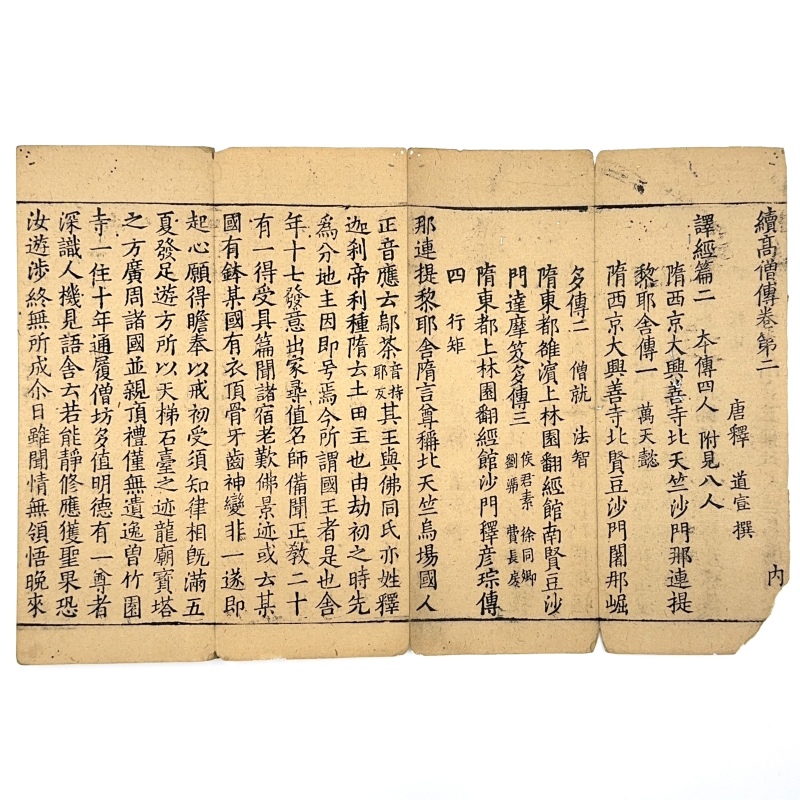 續高僧傳卷第二　内
唐釋　道宣　撰
譯經篇二　本傳四人　附見八人
隋西京大興善寺北天竺沙門那連提
黎耶舍傳一　萬天懿
隋西京大興善寺北賢豆沙門闍那崛
多傳二　僧就　法智
隋東都雒濵上林園翻經館南賢豆沙
門達摩笈多傳三　侯君素　徐同卿　劉憑　費長房
隋東都上林園翻經館沙門釋彦琮傳
四　行矩
那連提黎耶舍隋言尊稱北天竺烏場國人
正音應云鄔荼音持耶反其王與佛同氏亦姓釋
迦刹帝利種隋云土田主也由劫初之時先
爲分地主因即号焉今所謂國王者是也舍
年十七發意出家尋值名師備聞正教二十
有一得受具篇聞諸宿老歎佛景迹或云某
國有鉢某國有衣頂骨牙齒神變非一遂即
起心願得瞻奉以戒初受須知律相旣滿五
夏發足遊方所以天梯石臺之迹龍廟寶塔
之方廣周諸國並親頂禮僅無遺逸曽竹園
寺一住十年通履僧坊多值明德有一尊者
深識人機見語舍云若能靜修應獲聖果恐
汝遊涉終無所成尒日雖聞情無領悟晚來